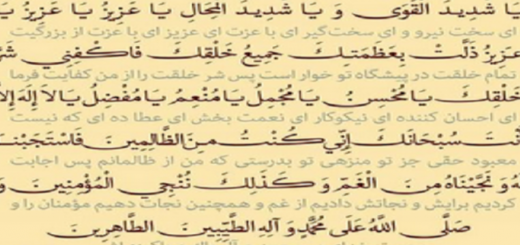 یَا شَدِیدَ الْقُوَى وَ یَا شَدِیدَ الْمِحَالِ یَا عَزِیزُ یَا عَزِیزُ یَا
ای سخت نیرو و ای سخت‌گیر ای با عزت ای عزیز ای با عزت از بزرگیت
عَزِیزُ ذَلَّتْ بِعَظَمَتِكَ جَمِیعُ خَلْقِكَ فَاكْفِنِی شَرَّ
تمام خلقت در پیشگاه تو خوار است پس شر خلقت را از من کفایت فرما
خَلْقِكَ یَا مُحْسِنُ یَا مُجْمِلُ یَا مُنْعِمُ یَا مُفْضِلُ یَا لَا إِلَهَ إِلَّا
ای احسان کننده ای نیکوکار ای نعمت بخش ای عطا ده ای که نیست
أَنْتَ سُبْحَانَكَ إِنِّی كُنْتُ مِنَ الظَّالِمِینَ فَاسْتَجَبْنَا
معبود حقی جز تو منزهی تو بدرستی که من از ظالمانم پس اجابت
لَهُ وَ نَجَّیْنَاهُ مِنَ الْغَمِّ وَ كَذَلِكَ نُنْجِی الْمُؤْمِنِینَ وَ
کردیم برایش و نجاتش دادیم از غم و همچنین نجات دهیم مؤمنان را و
صَلَّى اللَّهُ عَلَى مُحَمَّدٍ وَ آلِهِ الطَّیِّبِینَ الطَّاهِرِینَ